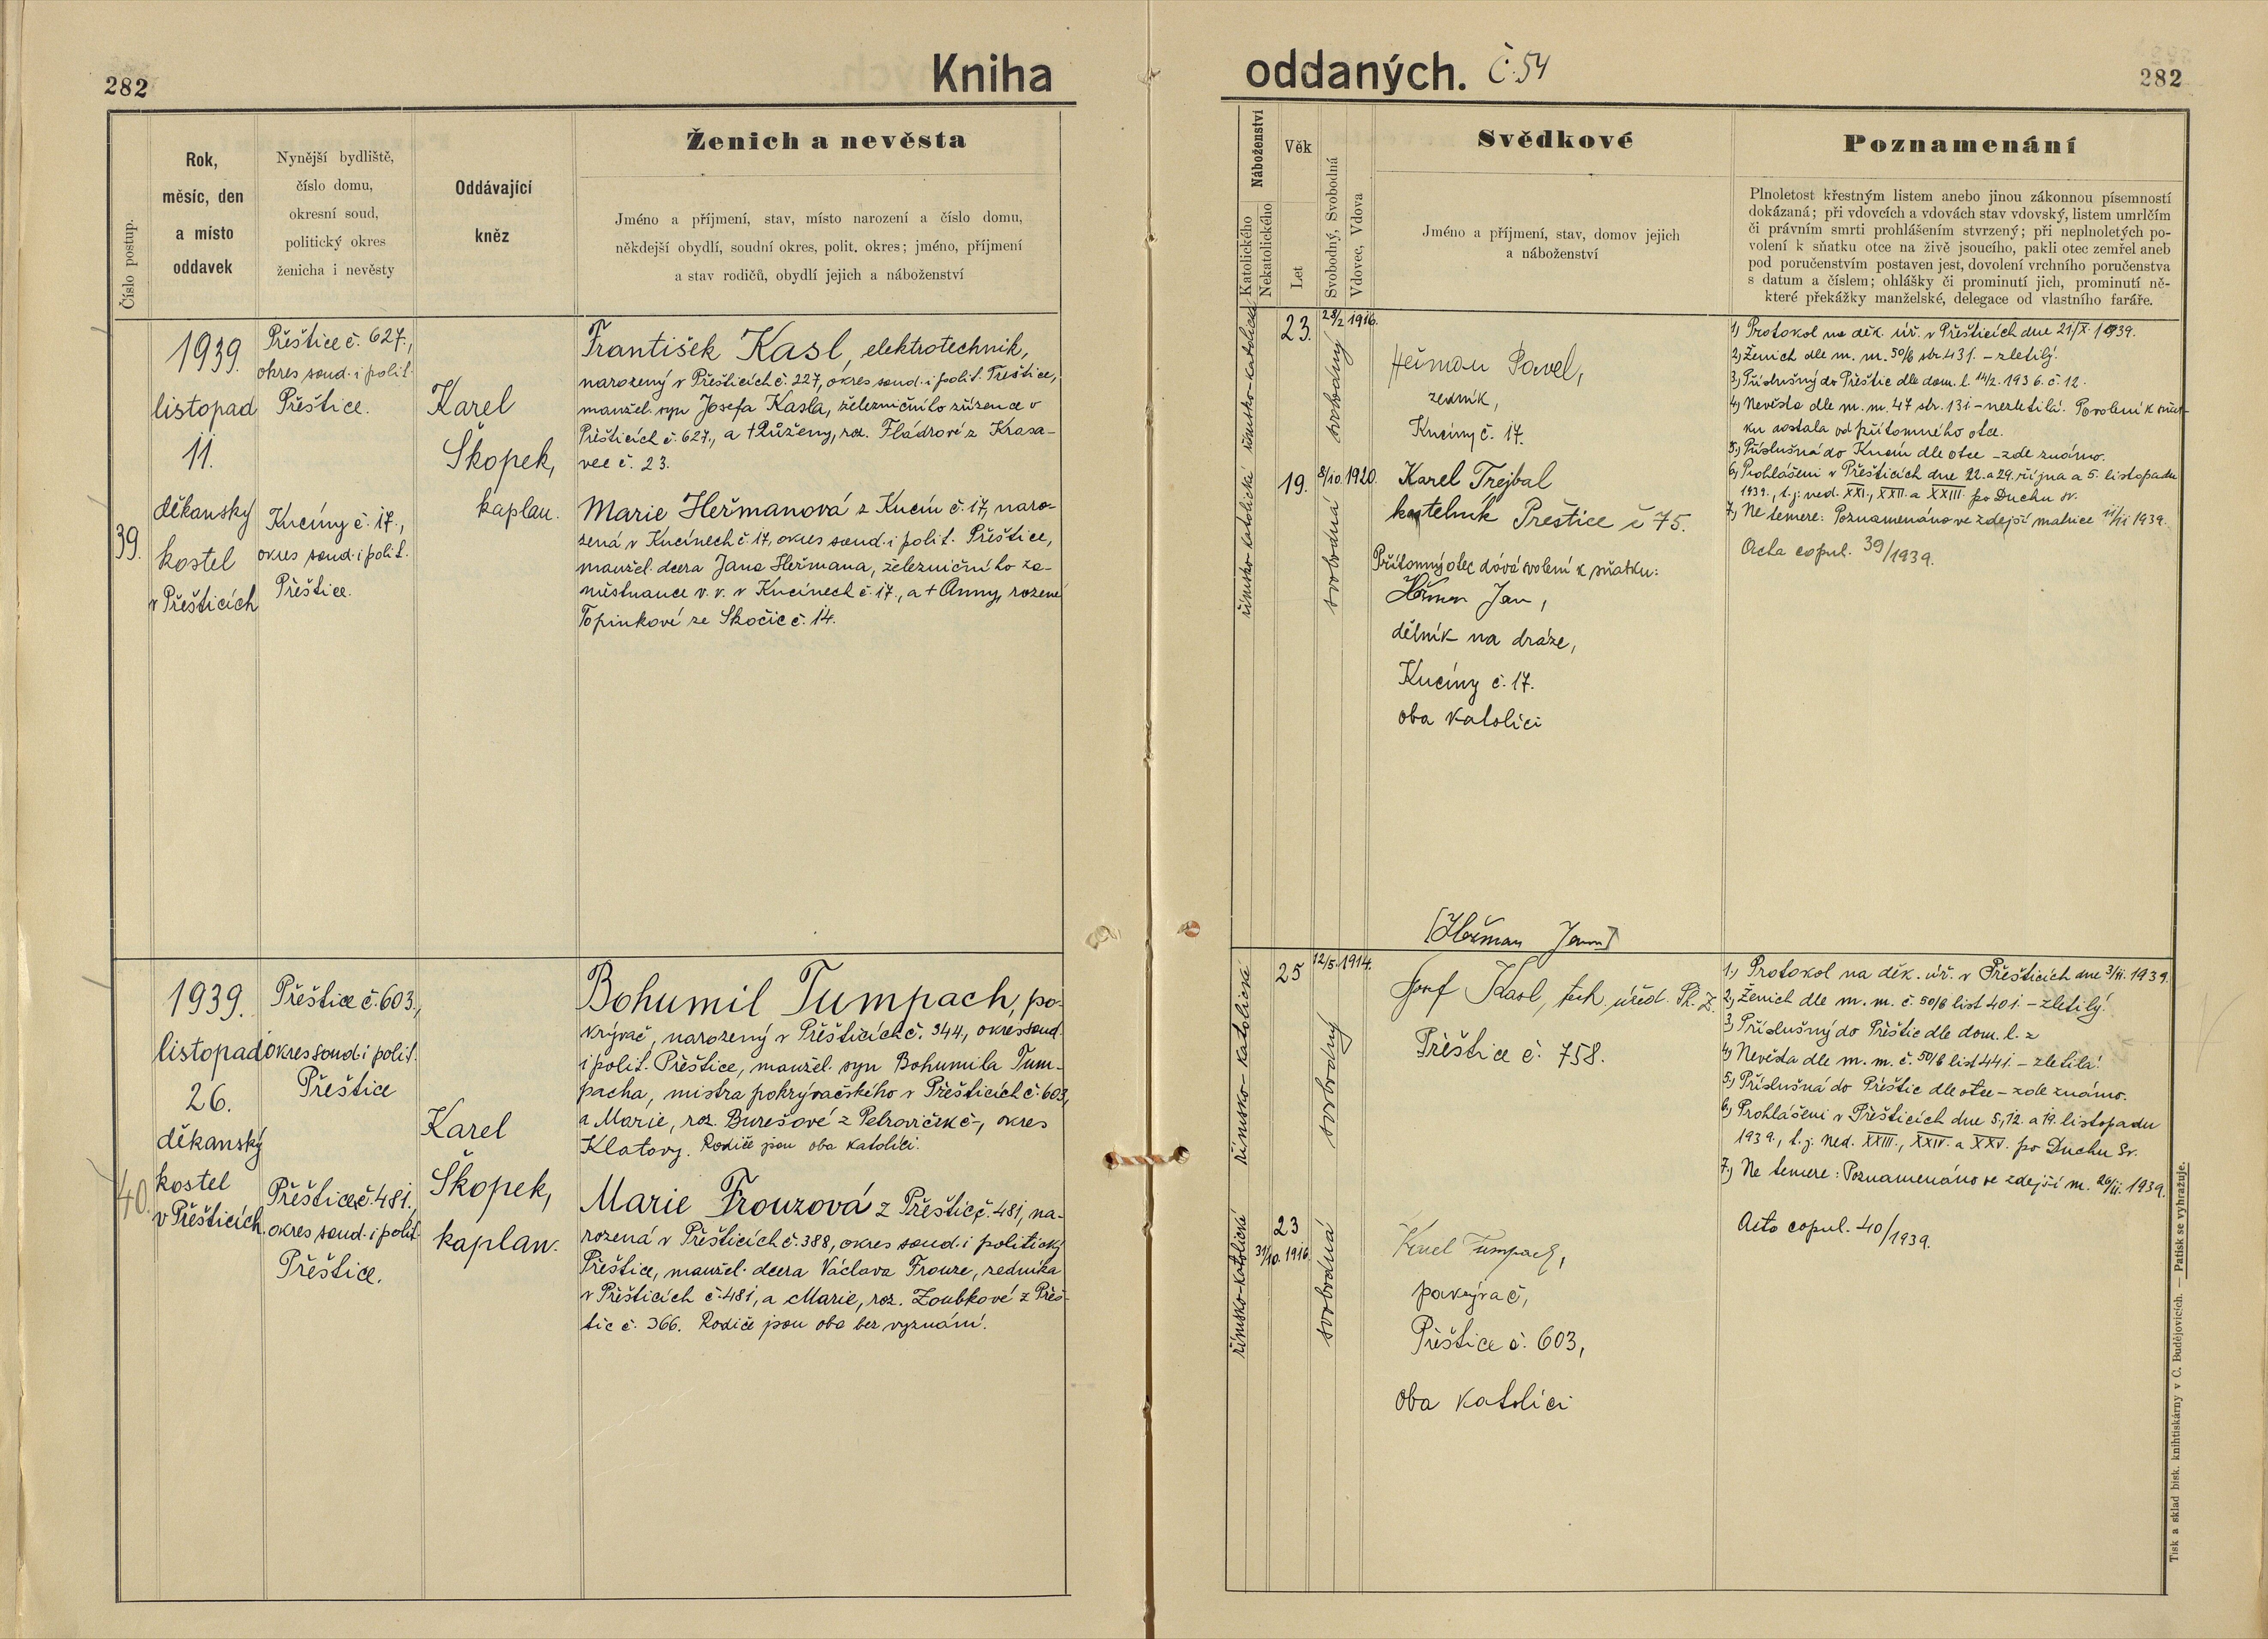 282
Kniha
oddaných. Č. 54
282
Číslo postup.
Rok,
měsíc, den
a místo
oddavek
Nynější bydliště,
číslo domu,
okresní soud,
politický okres
ženicha i nevěsty
Oddávající
kněz
Ženich a nevěsta
Jméno a příjmení, stav, místo narození a číslo domu,
někdejší obydlí, soudní okres, polit. okres; jméno, příjmení
a stav rodičů, obydlí jejich a náboženství
Náboženství
Katolického
Nekatolického
Věk
Let
Svobodný, Svobodná
Vdovec, Vdova
Svědkové
Jméno a příjmení, stav, domov jejich
a náboženství
Poznamenání
Plnoletost křestným listem anebo jinou zákonnou písemností
dokázaná; při vdovcích a vdovách stav vdovský, listem umrlčím
či právním smrti prohlášením stvrzený; při neplnoletých po-
volení k sňatku otce na živě jsoucího, pakli otec zemřel aneb
pod poručenstvím postaven jest, dovolení vrchního poručenstva
s datum a číslem; ohlášky či prominutí jich, prominutí ně-
které překážky manželské, delegace od vlastního faráře.
39.
1939.
listopad
11.
děkanský
kostel
v Přešticích
Přeštice č. 627.,
okres soud. i polit.
Přeštice.
Kucíny č. 17.,
okres soud. i polit.
Přeštice.
Karel
Škopek,
kaplan.
František Kasl, elektrotechnik,
narozený v Přešticích č. 227, okres soud. i polit. Přeštice,
manžel. syn Josefa Kasla, železničního zřízence v
Přešticích č. 627., a † Růženy, roz. Fládrové z Krasa-
vec č. 23.
Marie Heřmanová z Kucín č. 17, naro-
zená v Kucínech č. 17, okres soud. i polit. Přeštice,
manžel. dcera Jana Heřmana, železničního za-
městnance v. v. v Kucínech č. 17., a † Anny, rozené
Topinkové ze Skočic č. 14.
římsko-katolické
římsko-katolické
23.
28/2 1916.
svobodný
19.
8/10. 1920.
svobodná
Heřman Pavel,
zedník,
Kucíny č. 17.
Karel Trejbal
kostelník Přeštice č 75.
Přítomný otec dává svolení k sňatku:
Heřman Jan,
dělník na dráze,
Kucíny č. 17.
oba katolíci
[Heřman Jan]
1) Protokol na děk. úř. v Přešticích dne 21/X. 1939.
2) Ženich dle m. m. 50/6 str. 431. – zletilý.
3) Příslušný do Přeštic dle dom. l. 14/2. 1936. č. 12.
4) Nevěsta dle m. m. 47 str. 131 – nezletilá. Povolení k sňat-
ku dostala od přítomného otce.
5) Příslušná do Kucín dle otce – zde známo.
6) Prohlášeni v Přešticích dne 22. a 29. října a 5. listopadu
1939., t. j. ned. XXI., XXII. a XXIII. po Duchu sv.
7) Ne temere: Poznamenáno ve zdejší matrice 11/11 1939.
Acta copul. 39/1939.
40.
1939.
listopad
26.
děkanský
kostel
v Přešticích.
Přeštice č. 603.,
okres soud. i polit.
Přeštice
Přeštice č. 481.,
okres soud. i polit.
Přeštice.
Karel
Škopek,
kaplan.
Bohumil Tumpach, po-
krývač, narozený v Přešticích č. 344, okres soud.
i polit. Přeštice, manžel. syn Bohumila Tum-
pacha, mistra pokrývačského v Přešticích č. 603,
a Marie, roz. Burešové z Petroviček č –, okres
Klatovy. Rodiče jsou oba katolíci.
Marie Frouzová z Přeštic č. 481, na-
rozená v Přešticích č. 388, okres soud. i politický
Přeštice, manžel. dcera Václava Frouze, zedníka
v Přešticích č. 481, a Marie, roz. Zoubkové z Přeš-
tic č. 366. Rodiče jsou oba bez vyznání.
římsko-katolické
římsko-katolické
25
12/5. 1914.
svobodný
23
31/10. 1916.
svobodná
Josef Kasl, tech. úřed.
Přeštice č. 758.
Karel Tumpach,
pokrývač,
Přeštice č. 603,
oba katolíci
1.) Protokol na děk. úř. v Přešticích dne 3/11. 1939.
2.) Ženich dle m. m. č. 50/6 list 401. – zletilý.
3.) Příslušný do Přeštic dle dom. l. z
4.) Nevěsta dle m. m. č. 50/6 list 441. – zletilá.
5.) Příslušná do Přeštic dle otce – zde známo.
6.) Prohlášeni v Přešticích dne 5., 12. a 19. listopadu
1939., t. j. ned. XXIII., XXIV. a XXV. po Duchu Sv.
7.) Ne temere: Poznamenáno ve zdejší m. 26/11. 1939.
Acta copul. 40/1939.
Tisk a sklad bisk. knihtiskárny v Č. Budějovicích. — Patisk se vyhražuje.